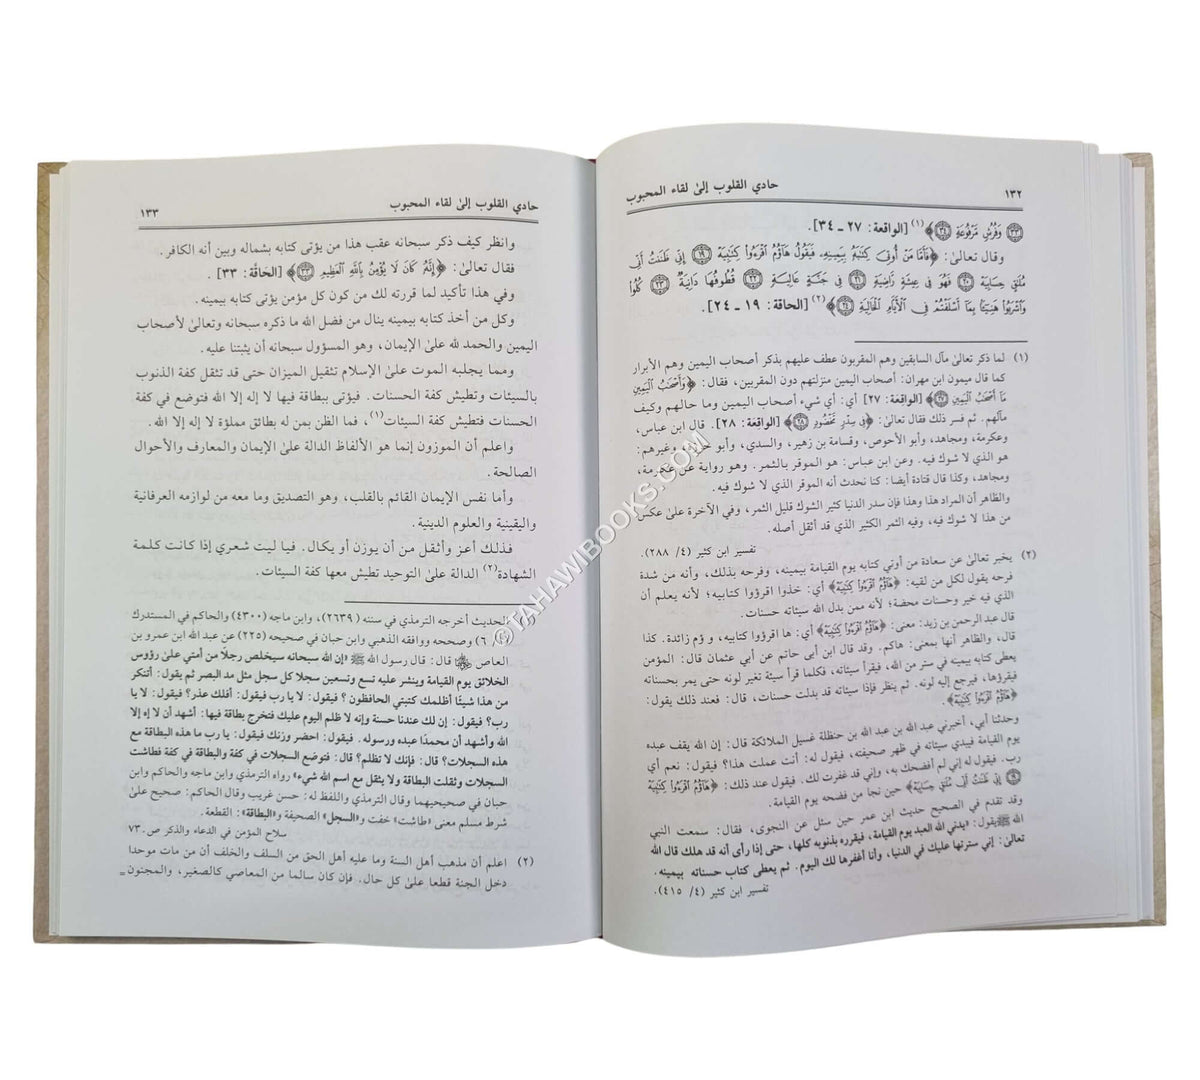 ١٣٢
حادي القلوب إلىٰ لقاء المحبوب
﴿٣٣﴾ وَفُرُشٍ مَرْفُوعَةٍ ﴿٣٤﴾﴾(١) [الواقعة: ٢٧ ـ ٣٤].
وقال تعالىٰ: ﴿فَأَمَّا مَنْ أُوتِيَ كِتَابَهُ بِيَمِينِهِ فَيَقُولُ هَاؤُمُ اقْرَءُوا كِتَابِيَهْ ﴿١٩﴾ إِنِّي ظَنَنتُ أَنِّي
مُلَاقٍ حِسَابِيَهْ ﴿٢٠﴾ فَهُوَ فِي عِيشَةٍ رَاضِيَةٍ ﴿٢١﴾ فِي جَنَّةٍ عَالِيَةٍ ﴿٢٢﴾ قُطُوفُهَا دَانِيَةٌ ﴿٢٣﴾ كُلُوا
وَاشْرَبُوا هَنِيئًا بِمَا أَسْلَفْتُمْ فِي الْأَيَّامِ الْخَالِيَةِ ﴿٢٤﴾﴾(٢) [الحاقة: ١٩ ـ ٢٤].
(١) لما ذكر تعالىٰ مآل السابقين وهم المقربون عطف عليهم بذكر أصحاب اليمين وهم الأبرار
كما قال ميمون ابن مهران: أصحاب اليمين منزلتهم دون المقربين، فقال: ﴿وَأَصْحَابُ الْيَمِينِ
مَا أَصْحَابُ الْيَمِينِ ﴿٢٧﴾﴾ [الواقعة: ٢٧] أي: أي شيء أصحاب اليمين وما حالهم وكيف
مآلهم. ثم فسر ذلك فقال تعالىٰ: ﴿فِي سِدْرٍ مَخْضُودٍ ﴿٢٨﴾﴾ [الواقعة: ٢٨]. قال ابن عباس،
وعكرمة، ومجاهد، وأبو الأحوص، وقسامة بن زهير، والسدي، وأبو حزرة وغيرهم:
هو الذي لا شوك فيه. وعن ابن عباس: هو الموقر بالثمر. وهو رواية عن عكرمة،
ومجاهد، وكذا قال قتادة أيضا: كنا نحدث أنه الموقر الذي لا شوك فيه.
والظاهر أن المراد هذا وهذا فإن سدر الدنيا كثير الشوك قليل الثمر، وفي الآخرة علىٰ عكس
من هذا لا شوك فيه، وفيه الثمر الكثير الذي قد أثقل أصله.
تفسير ابن كثير (٤/ ٢٨٨).
(٢) يخبر تعالىٰ عن سعادة من أوتي كتابه يوم القيامة بيمينه، وفرحه بذلك، وأنه من شدة
فرحه يقول لكل من لقيه: ﴿هَاؤُمُ اقْرَءُوا كِتَابِيَهْ﴾ أي: خذوا اقرؤوا كتابيه؛ لأنه يعلم أن
الذي فيه خير وحسنات محضة؛ لأنه ممن بدل الله سيئاته حسنات.
قال عبد الرحمن بن زيد: معنى: ﴿هَاؤُمُ اقْرَءُوا كِتَابِيَهْ﴾ أي: ها اقرؤوا كتابيه، و ؤم زائدة. كذا
قال، والظاهر أنها بمعنى: هاكم. وقد قال ابن أبي حاتم عن أبي عثمان قال: المؤمن
يعطى كتابه بيمينه في ستر من الله، فيقرأ سيئاته، فكلما قرأ سيئة تغير لونه حتى يمر بحسناته
فيقرؤها، فيرجع إليه لونه. ثم ينظر فإذا سيئاته قد بدلت حسنات، قال: فعند ذلك يقول:
﴿هَاؤُمُ اقْرَءُوا كِتَابِيَهْ﴾.
وحدثنا أبي، أخبرني عبد الله بن عبد الله بن حنظلة غسيل الملائكة قال: إن الله يقف عبده
يوم القيامة فيبدي سيئاته في ظهر صحيفته، فيقول له: أنت عملت هذا؟ فيقول: نعم أي
رب. فيقول له إني لم أفضحك به، وإني قد غفرت لك. فيقول عند ذلك: ﴿هَاؤُمُ اقْرَءُوا كِتَابِيَهْ
إِنِّي ظَنَنتُ أَنِّي مُلَاقٍ حِسَابِيَهْ ﴿٢٠﴾﴾ حين نجا من فضحه يوم القيامة.
وقد تقدم في الصحيح حديث ابن عمر حين سئل عن النجوى، فقال: سمعت النبي
الله ﷺ يقول: «يدني الله العبد يوم القيامة، فيقرره بذنوبه كلها، حتى إذا رأى أنه قد هلك قال الله
تعالىٰ: إني سترتها عليك في الدنيا، وأنا أغفرها لك اليوم. ثم يعطى كتاب حسناته بيمينه.
تفسير ابن كثير (٤/ ٤١٥).
حادي القلوب إلىٰ لقاء المحبوب
١٣٣
وانظر كيف ذكر سبحانه عقب هذا من يؤتى كتابه بشماله وبين أنه الكافر.
فقال تعالىٰ: ﴿إِنَّهُ كَانَ لَا يُؤْمِنُ بِاللَّهِ الْعَظِيمِ ﴿٣٣﴾﴾ [الحاقة: ٣٣].
وفي هذا تأكيد لما قررته لك من كون كل مؤمن يؤتى كتابه بيمينه.
وكل من أخذ كتابه بيمينه ينال من فضل الله ما ذكره سبحانه وتعالىٰ لأصحاب
اليمين والحمد لله علىٰ الإيمان، وهو المسؤول سبحانه أن يثبتنا عليه.
ومما يجلبه الموت علىٰ الإسلام تثقيل الميزان حتى قد تثقل كفة الذنوب
بالسيئات وتطيش كفة الحسنات. فيؤتى ببطاقة فيها لا إله إلا الله فتوضع في كفة
الحسنات فتطيش كفة السيئات(١)، فما الظن بمن له بطائق مملؤة لا إله إلا الله.
واعلم أن الموزون إنما هو الألفاظ الدالة علىٰ الإيمان والمعارف والأحوال
الصالحة.
وأما نفس الإيمان القائم بالقلب، وهو التصديق وما معه من لوازمه العرفانية
واليقينية والعلوم الدينية.
فذلك أعز وأثقل من أن يوزن أو يكال. فيا ليت شعري إذا كانت كلمة
الشهادة(٢) الدالة علىٰ التوحيد تطيش معها كفة السيئات.
الحديث أخرجه الترمذي في سننه (٢٦٣٩)، وابن ماجه (٤٣٠٠) والحاكم في المستدرك
٦) وصححه ووافقه الذهبي وابن حبان في صحيحه (٢٢٥) عن عبد الله ابن عمرو بن
العاص رضي الله عنه قال: قال رسول الله ﷺ «إن الله سبحانه سيخلص رجلًا من أمتي علىٰ رؤوس
الخلائق يوم القيامة وينشر عليه تسع وتسعين سجلا كل سجل مثل مد البصر ثم يقول: أتنكر
من هذا شيئًا أظلمك كتبتي الحافظون؟ فيقول: لا يا رب فيقول: أفلك عذر؟ فيقول: لا يا
رب؟ فيقول: إن لك عندنا حسنة وإنه لا ظلم اليوم عليك فتخرج بطاقة فيها: أشهد أن لا إله إلا
الله وأشهد أن محمدًا عبده ورسوله. فيقول: احضر وزنك فيقول: يا رب ما هذه البطاقة مع
هذه السجلات؟ قال: فإنك لا تظلم؟ قال: فتوضع السجلات في كفة والبطاقة في كفة فطاشت
السجلات وثقلت البطاقة ولا يثقل مع اسم الله شيء» رواه الترمذي وابن ماجه والحاكم وابن
حبان في صحيحيهما وقال الترمذي واللفظ له: حسن غريب وقال الحاكم: صحيح علىٰ
شرط مسلم معنى «طاشت» خفت و«السجل» الصحيفة و«البطاقة»: القطعة.
سلاح المؤمن في الدعاء والذكر ص.٧٣
(٢) اعلم أن مذهب أهل السنة وما عليه أهل الحق من السلف والخلف أن من مات موحدا
دخل الجنة قطعا علىٰ كل حال. فإن كان سالما من المعاصي كالصغير، والمجنون =
©TAHAWIBOOKS.COM